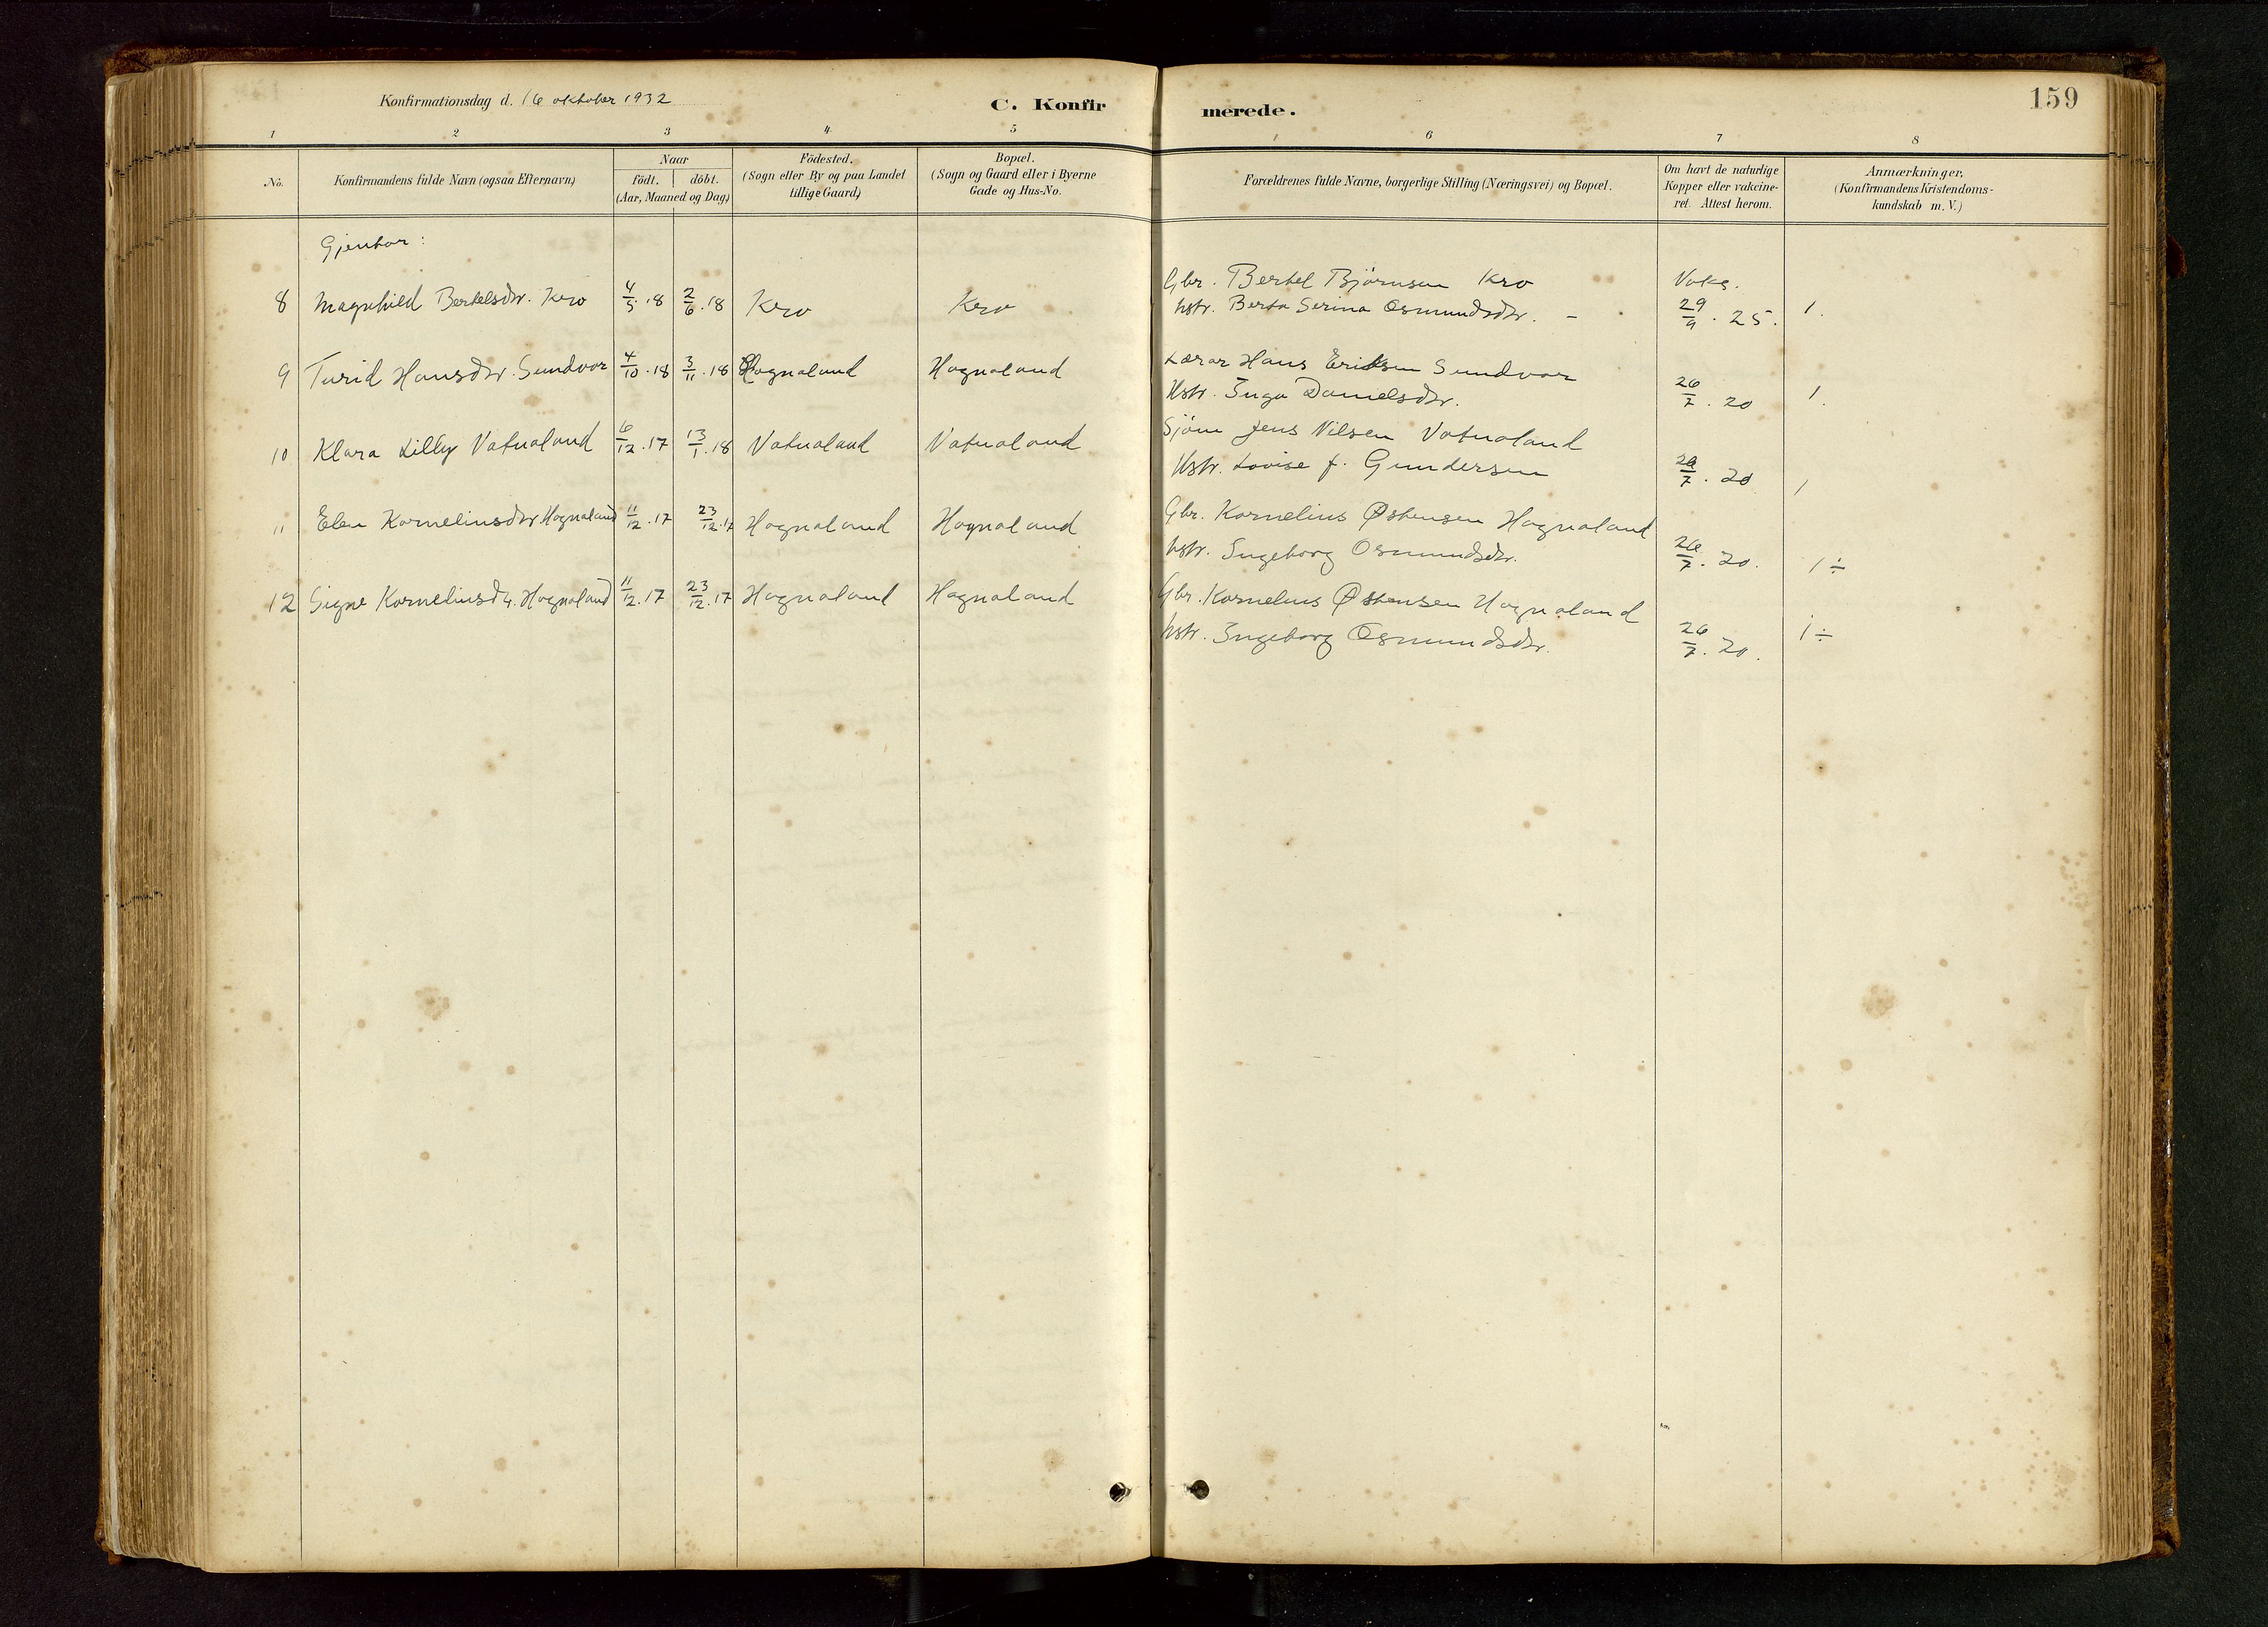 Konfirmationsdag d. 16 oktober 1932
C. Konfirmerede.
159
1 2 3 4 5 6 7 8
No.
Konfirmandens fulde Navn (ogsaa Efternavn)
Naar
født. døbt.
(Aar, Maaned og Dag)
Fødested.
(Sogn eller By og paa Landet
tillige Gaard)
Bopæl.
(Sogn og Gaard eller i Byerne
Gade og Hus-No.
Forældrenes fulde Navne, borgerlige Stilling (Næringsvei) og Bopæl.
Om havt de naturlige
Kopper eller vakcine-
ret. Attest herom.
Anmærkninger,
(Konfirmandens Kristendoms-
kundskab m. V.)
Gjentor:
8 Magnhild Bertelsdtr. Kro 4/5.18 2/6.18 Kro Kro
Gbr. Bertel Bjørnsen Kro
hstr. Berta Serina Osmundsdtr. -
Vaks.
29/9. 25. 1.
9 Turid Hansdtr. Sundvor 4/10.18 3/11.18 Hognaland Hognaland
Lærar Hans Eriksen Sundvor
Hstr. Inga Danielsdtr.
26/7. 20 1.
10 Klara Lilly Vatnaland 6/12.17 13/1.18 Vatnaland Vatnaland
Sjøm Jens Nilsen Vatnaland
Hstr. Lovise f. Gundersen
26/7. 20 1
11 Elen Kornelinsdtr Hognaland 11/12.17 23/12.17 Hognaland Hognaland
Gbr. Kornelius Østensen Hognaland
hstr. Ingeborg Osmundsdtr.
26/7. 20. 1÷
12 Signe Kornelinsdtr. Hognaland 11/12.17 23/12.17 Hognaland Hognaland
Gbr. Kornelius Østensen Hognaland
hstr. Ingeborg Osmundsdtr.
26/7. 20. 1÷